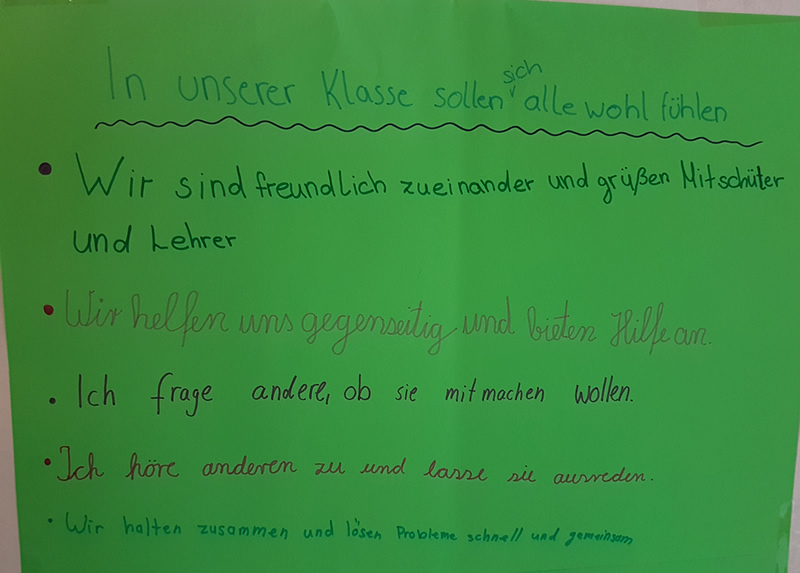 In unserer Klasse sollen sich alle wohl fühlen
• Wir sind freundlich zueinander und grüßen Mitschüler
und Lehrer
• Wir helfen uns gegenseitig und bieten Hilfe an.
• Ich frage andere, ob sie mitmachen wollen.
• Ich höre anderen zu und lasse sie ausreden.
• Wir halten zusammen und lösen Probleme schnell und gemeinsam